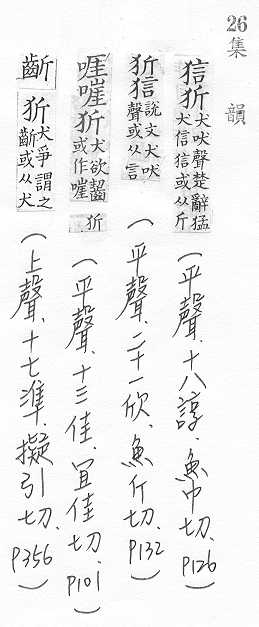 26 集韻
狺㹞犬吠聲楚辭猛犬信狺或从斤(平聲、十八諄、魚巾切、P126)
㹞狺說文犬吠聲或从言(平聲、二十一欣、魚斤切、P132)
啀嘊㹞犬欲齧或作嘊㹞(平聲、十三佳、宜佳切、P101)
齗㹞犬爭謂之齗或从犬(上聲、十七準、擬引切、P356)